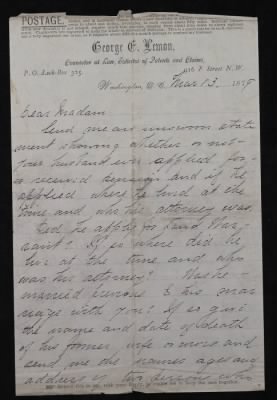 POSTAGE.
George E. Lemon,
Counselor at Law, Solicitor of Patents and Claims,
P. O. Lock-Box 325. 916 F Street N. W.
Washington, D. C. Mar 13, 1879
Dear Madam
Send me an unsworn state
ment showing whether or not
your husband ever applied for
a service pension and if he
applied where he lived at the
time and who his attorney was.
Did he apply for Land War
rant? If so where did he
live at the time and who
was his attorney? Was he
married previous to his mar
riage with you? If so give
the name and date of death
of his former wife or wives and
send me the names ages and
address of two persons who